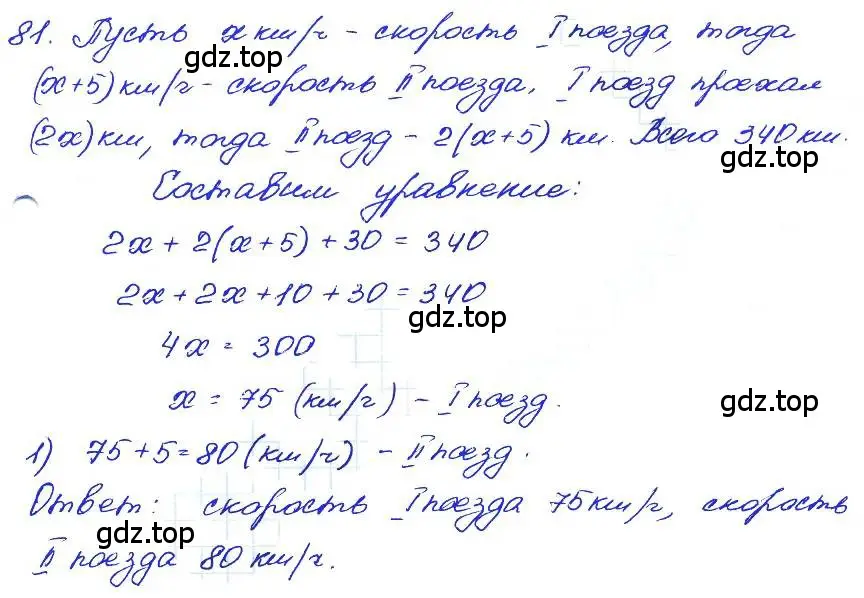 81. Пусть x км/ч - скорость I поезда, тогда
(x+5) км/ч - скорость II поезда. I поезд проехал
(2x) км, тогда II поезд - 2(x+5) км. Всего 340 км.
Составим уравнение:
2x + 2(x+5) + 30 = 340
2x + 2x + 10 + 30 = 340
4x = 300
x = 75 (км/ч) - I поезд.
1) 75 + 5 = 80 (км/ч) - II поезд.
Ответ: скорость I поезда 75 км/ч, скорость
II поезда 80 км/ч.
gdz.top
gdz.top
gdz.top
gdz.top
gdz.top
gdz.top